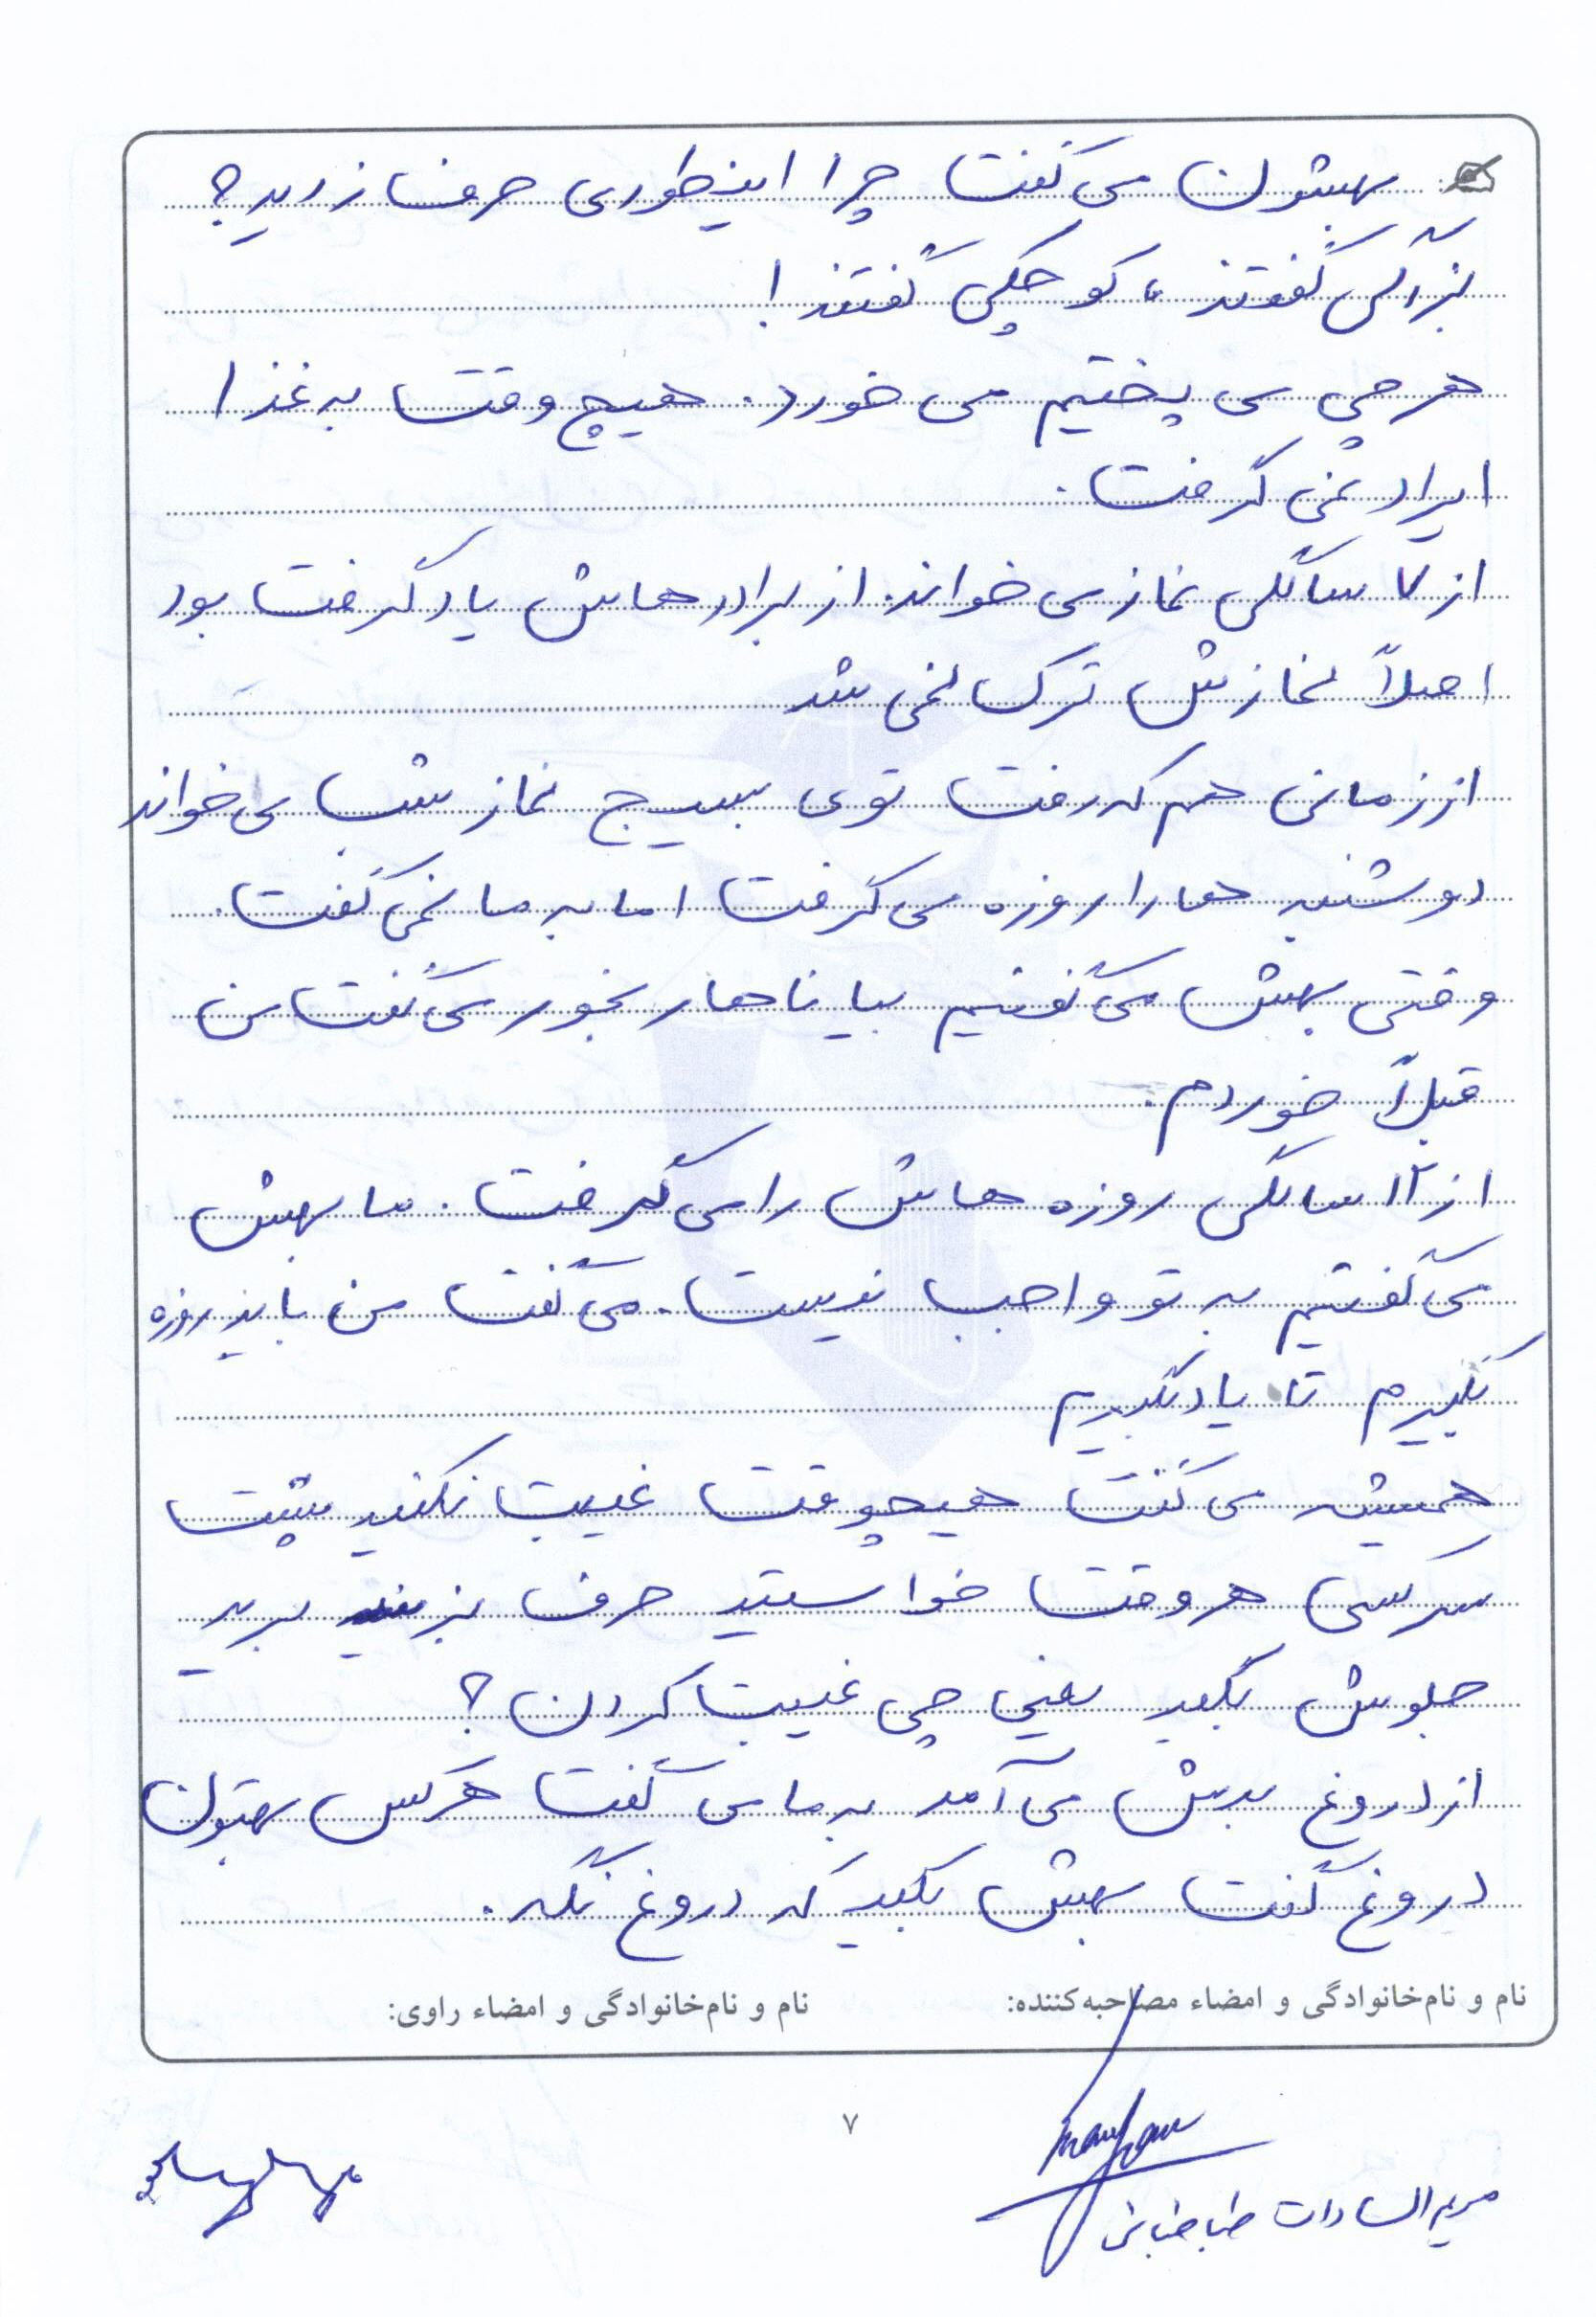 بهشون می گفت چرا اینطوری حرف زدید؟
بزرگی گفتند، کوچکی گفتند!
هر چی می پختیم می خورد. هیچ وقت به غذا
ایراد نمی گرفت.
از ۷ سالگی نماز می خواند. از برادرهایش یاد گرفت بود
اصلاً نمازش ترک نمی شد
از زمانی هم که رفت توی بسیج نماز شب می خواند
دوشنبه ها را روزه می گرفت اما به ما نمی گفت.
وقتی بهش می گفتیم بیا ناهار بخور می گفت من
قبلاً خوردم.
از ۱۲ سالگی روزه هایش را می گرفت. ما بهش
می گفتیم به تو واجب نیست. می گفت من باید روزه
بگیرم تا یاد بگیرم
همیشه می گفت هیچوقت غیبت نکنید پشت
سر کسی هر وقت خواستید حرف بزنید برید
جلوش بگید یعنی چی غیبت کردن؟
از دروغ بدش می آمد به ما می گفت هر کس بهتون
دروغ گفت بهش بگید که دروغ نگه.
نام و نام‌خانوادگی و امضاء مصاحبه‌کننده: نام و نام‌خانوادگی و امضاء راوی:
۷
مریم السادات طباطبائی